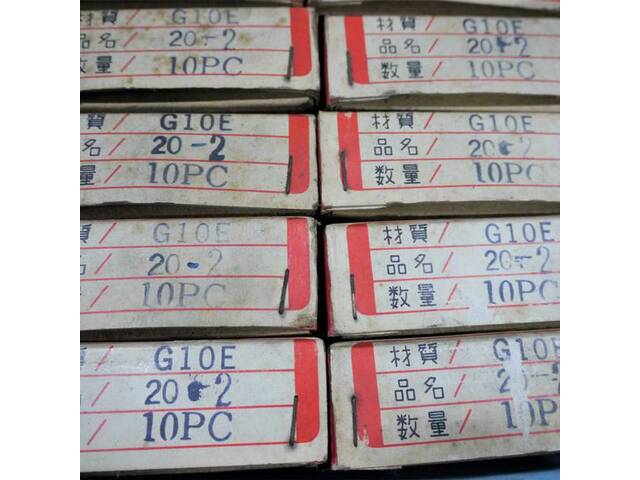 材質/ G10E
品名/ 20-2
数量/ 10PC
材質/ G10E
品名/ 20-2
数量/ 10PC
質/ G10E
名/ 20-2
量/ 10PC
材質/ G10E
品名/ 20-2
数量/ 10PC
質/ G10E
名/ 20-2
量/ 10PC
材質/ G10E
品名/ 20-2
数量/ 10PC
/ G10E
/ 20-2
/ 10PC
材質/ G10E
品名/ 20-2
数量/ 10P